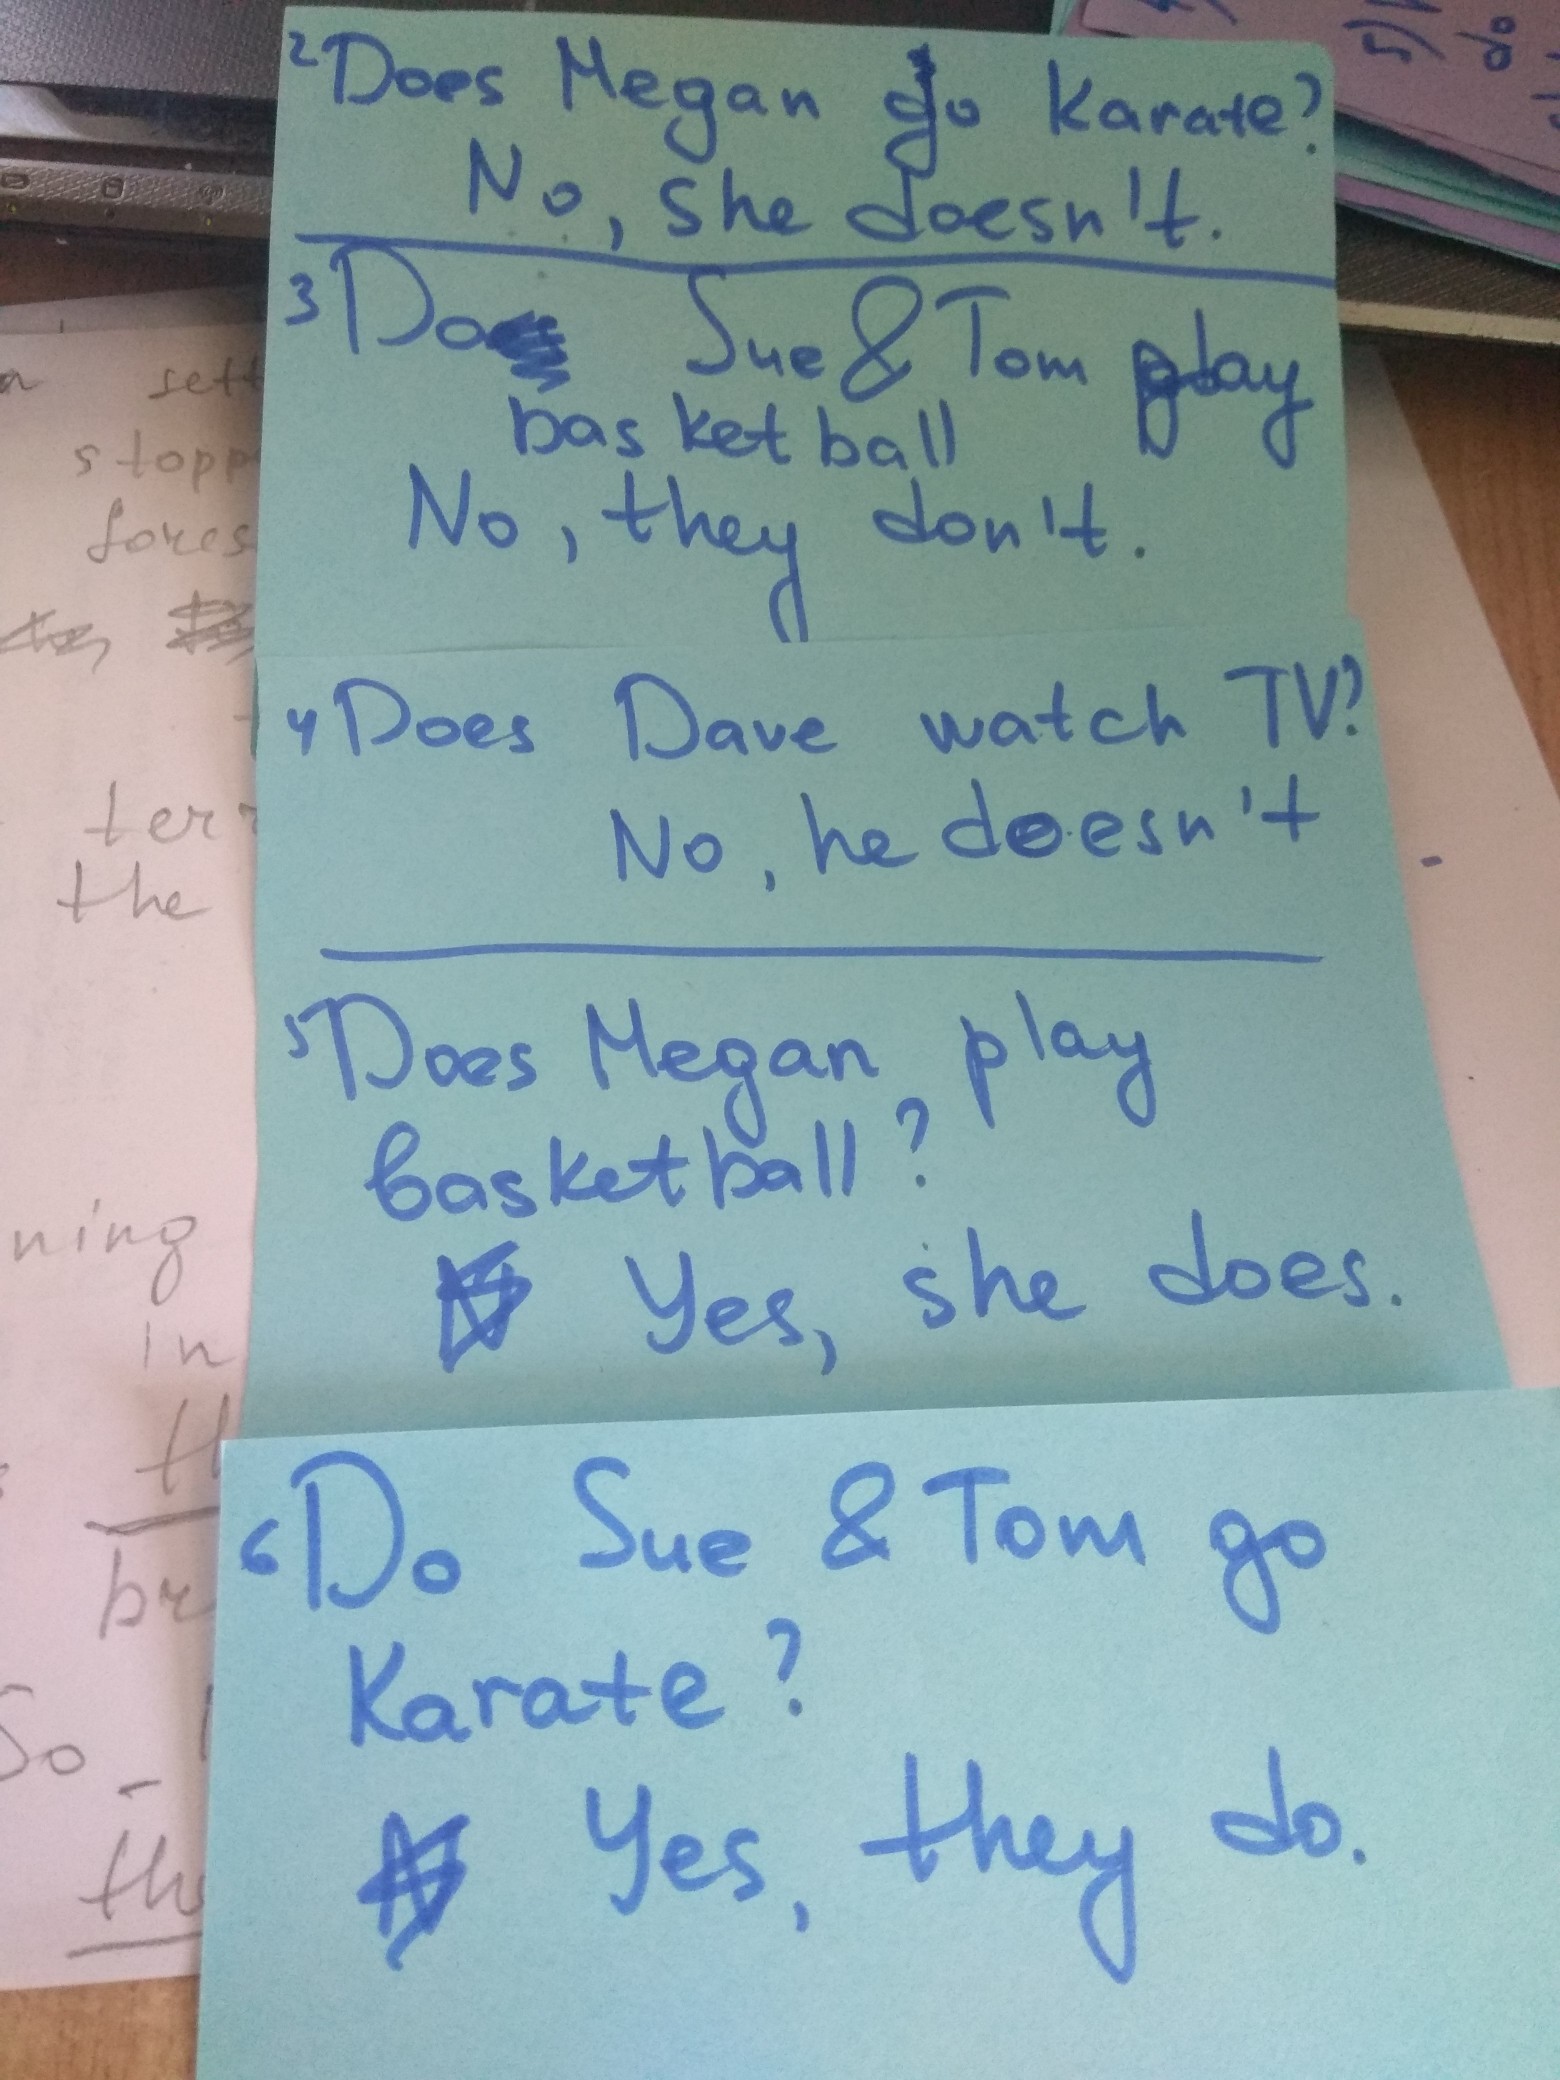 2 Does Megan do Karate?
No, she doesn't.
3 Do Sue & Tom play
basketball
No, they don't.
4 Does Dave watch TV?
No, he doesn't
5 Does Megan play
basketball?
Yes, she does.
6 Do Sue & Tom go
Karate?
Yes, they do.
stopp
fores
the
ning
in
br
So
5)
do